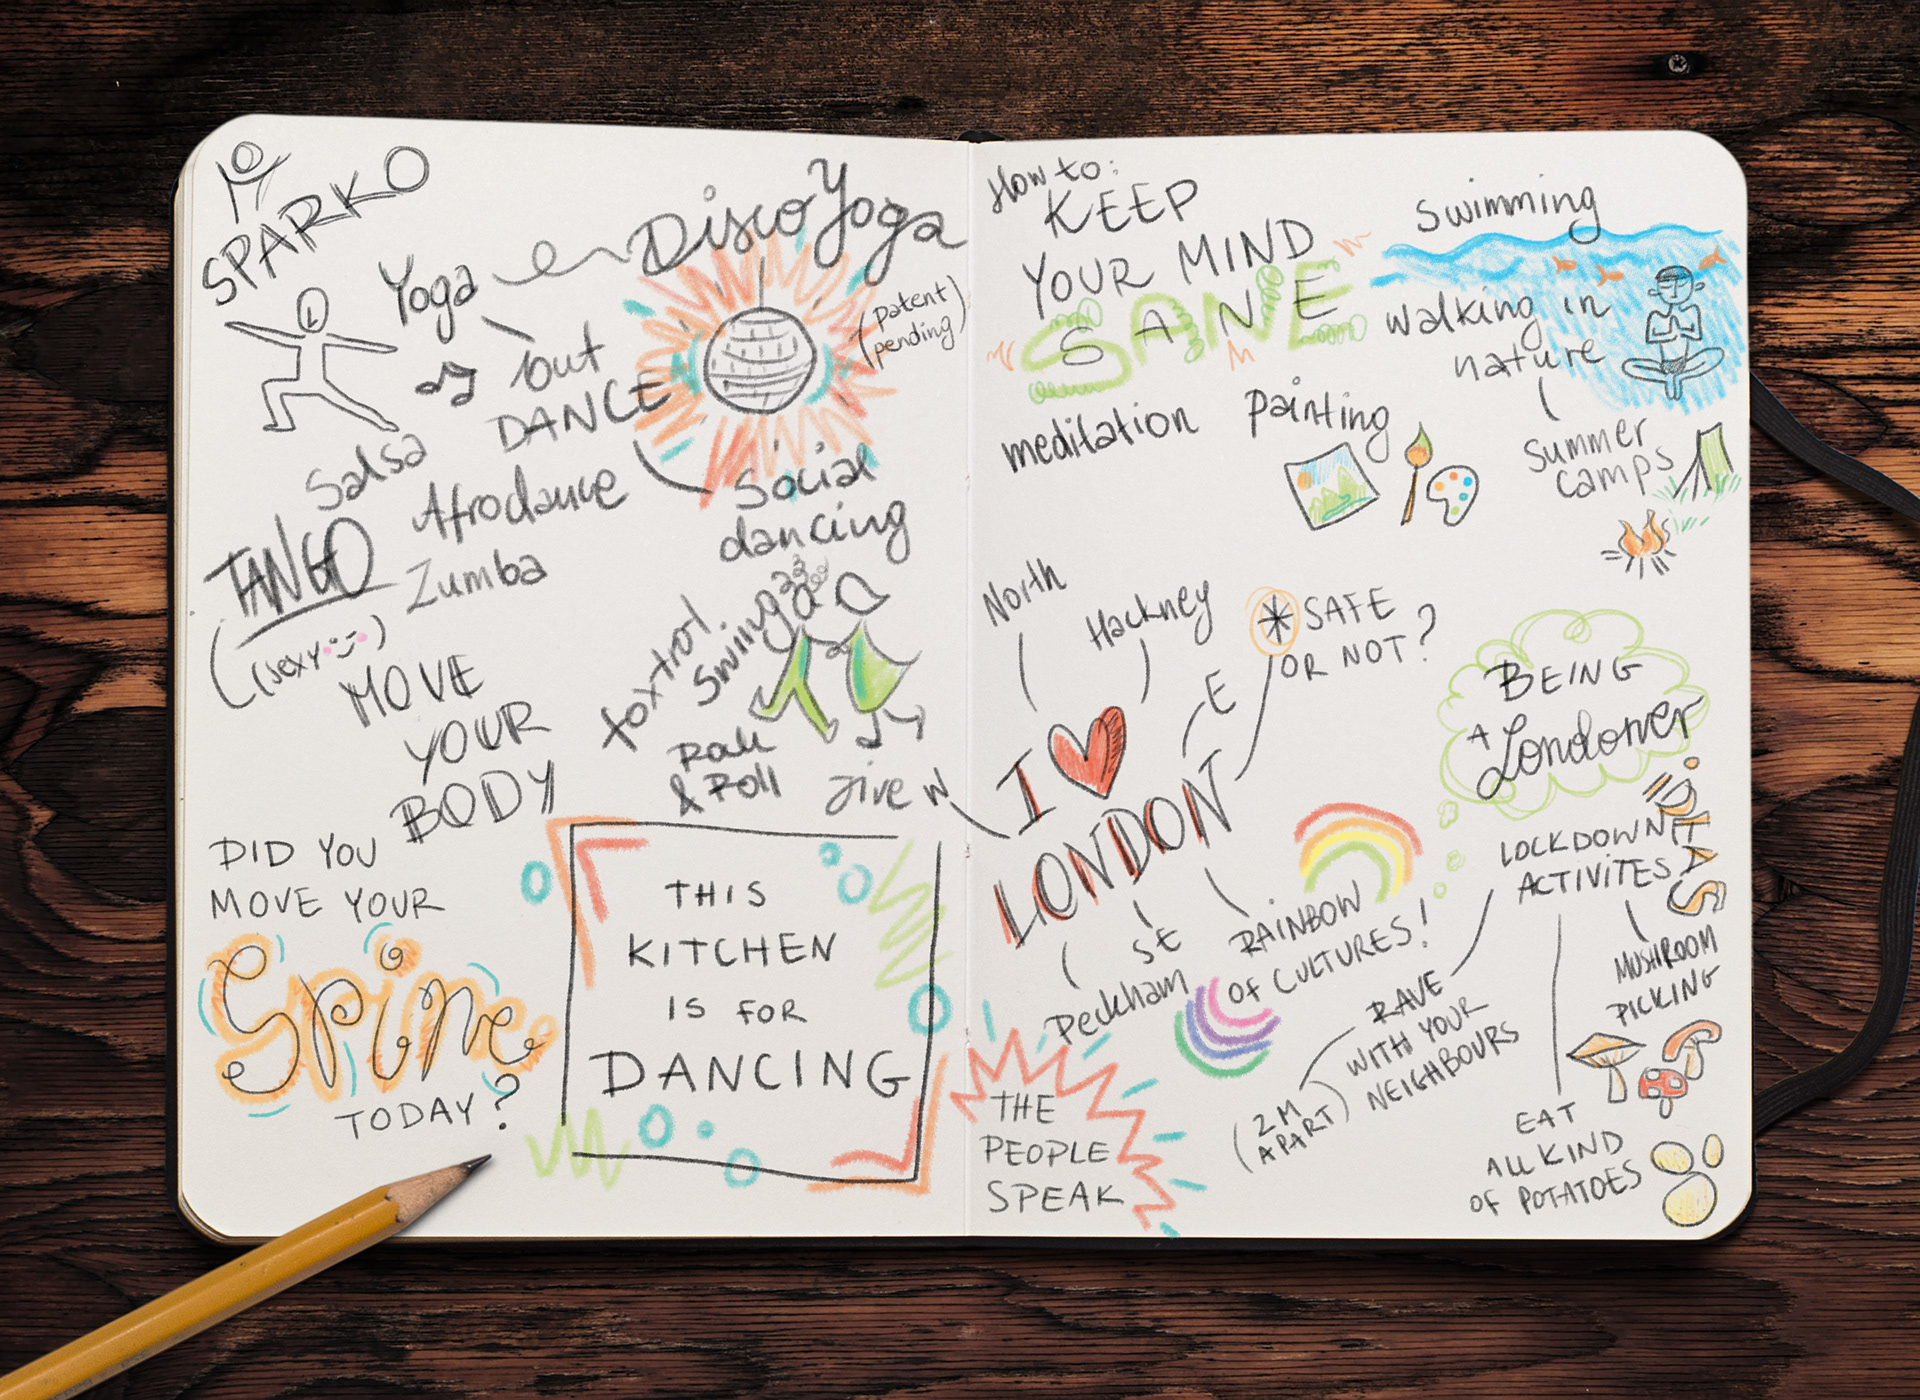 SPARKO
Yoga
Disco Yoga
(patent
pending)
but
DANCE
Salsa
Afrodance
TANGO
Zumba
(sexy :-)
Social
dancing
foxtrot.
Swing
Rock
& Roll
Jive
MOVE
YOUR
BODY
DID YOU
MOVE YOUR
Spine
TODAY?
THIS
KITCHEN
IS FOR
DANCING
How to:
KEEP
YOUR MIND
SANE
meditation
painting
swimming
walking in
nature
summer
camps
North
Hackney
* SAFE
OR NOT?
E
W
I
LONDON
SE
Peckham
RAINBOW
OF CULTURES!
BEING
A
Londoner
IDEAS
LOCKDOWN
ACTIVITES
MUSHROOM
PICKING
RAVE
WITH YOUR
NEIGHBOURS
(2M
APART)
EAT
ALL KIND
OF POTATOES
THE
PEOPLE
SPEAK